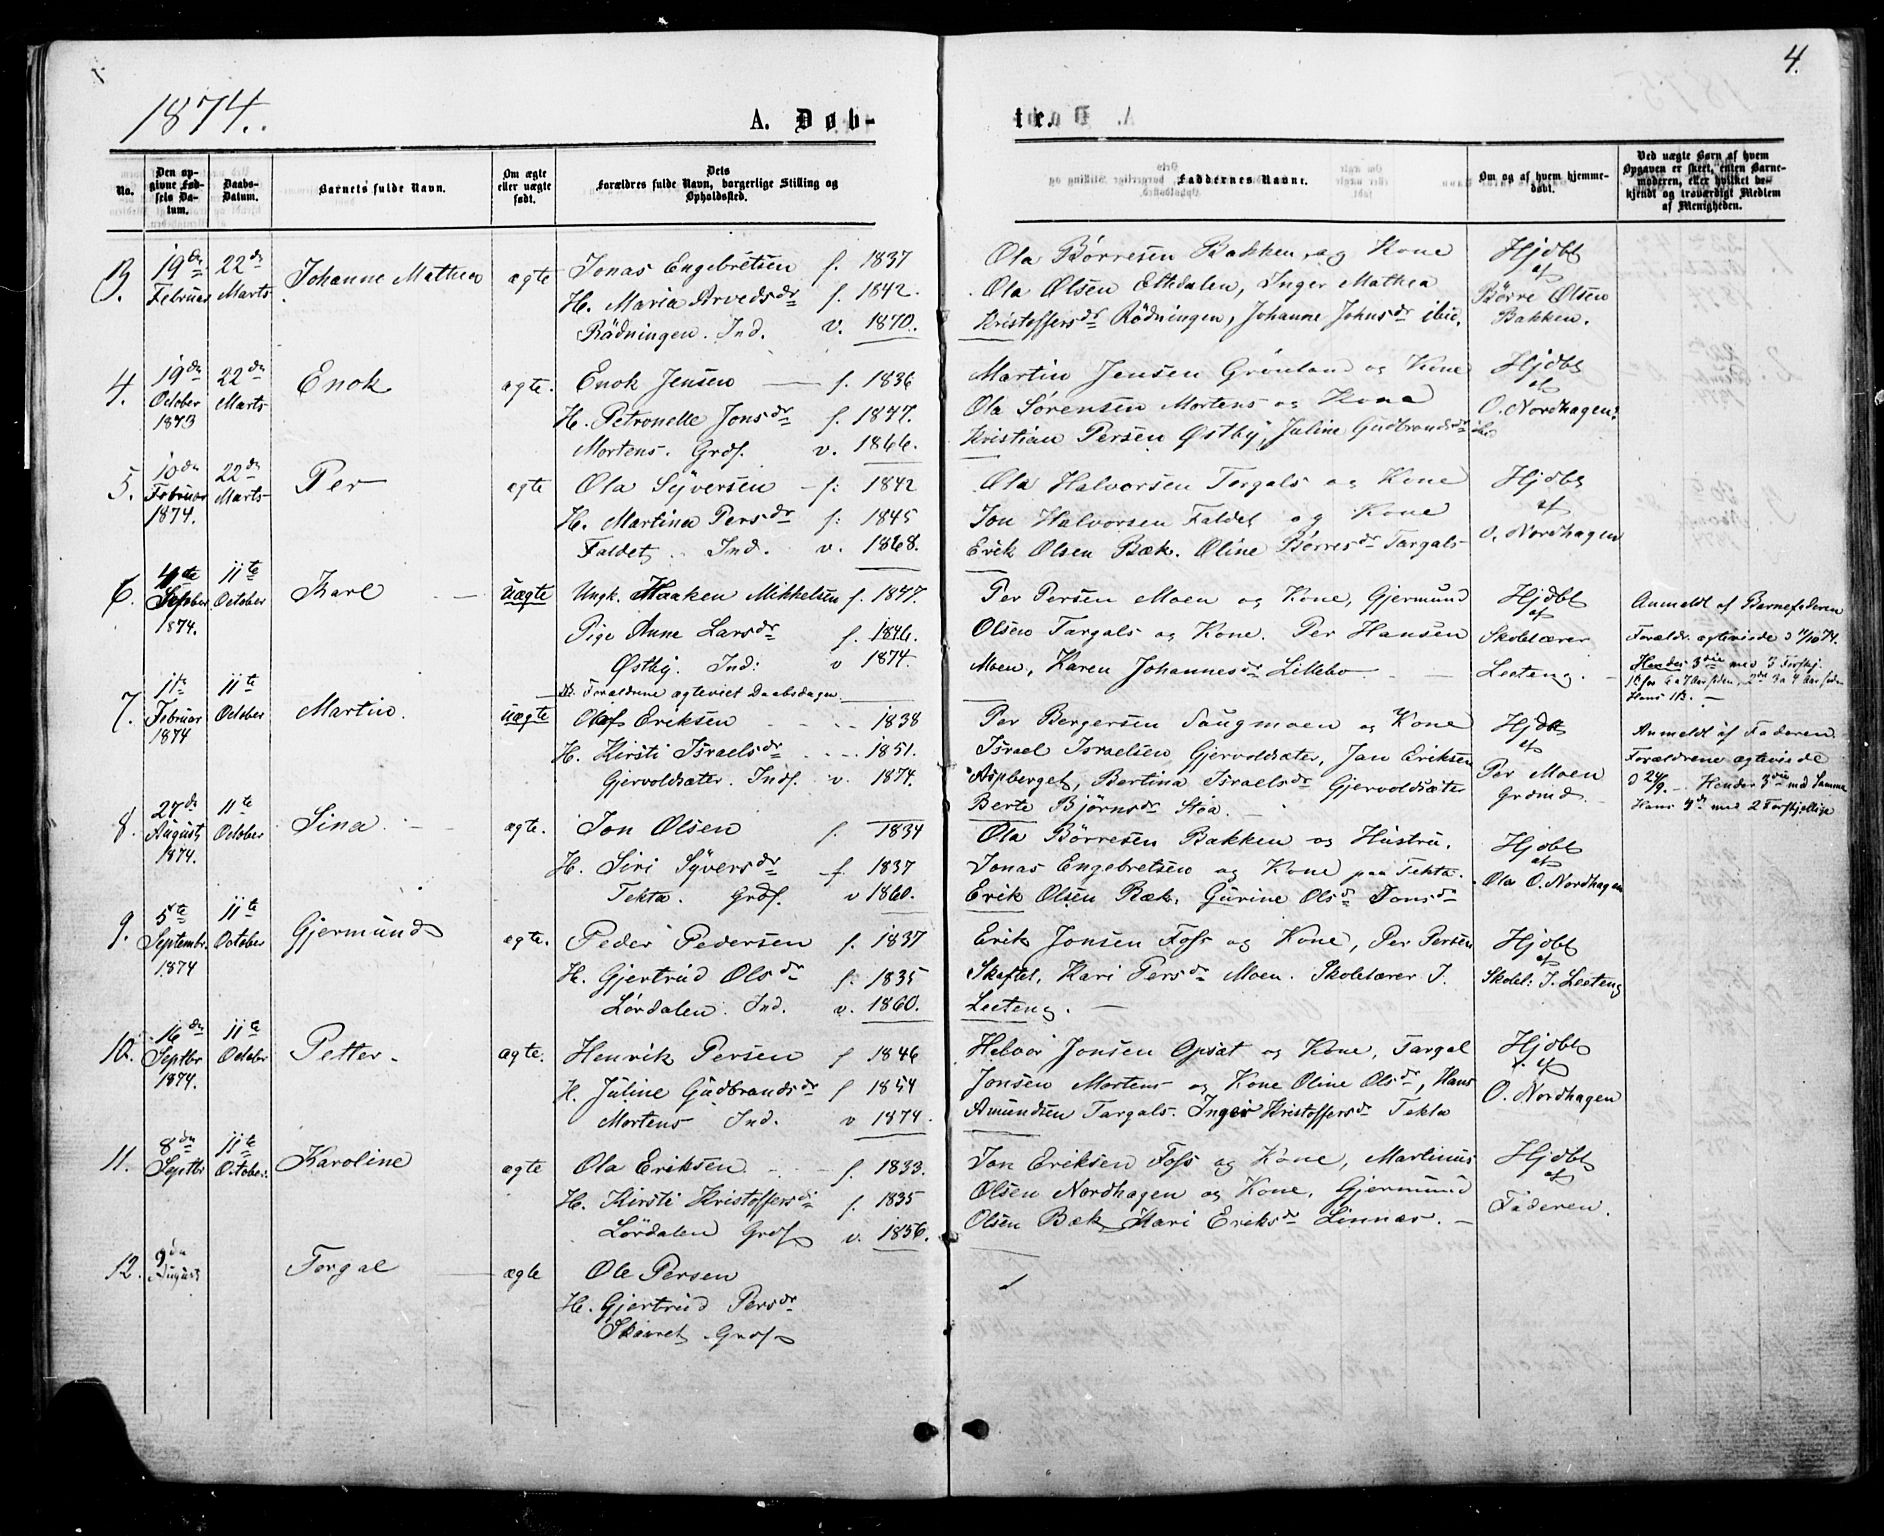 4.
1874.
A. Døb-
te.
No.
Den op-
givne Fød-
sels Da-
tum.
Daabs-
Datum.
Barnets fulde Navn.
Om ægte
eller uægte
født.
Dets
Forældres fulde Navn, borgerlige Stilling og
Opholdssted.
Faddernes Navne.
Om og af hvem hjemme-
døbt.
Ved uægte Børn af hvem
Opgaven er skeet, enten Barne-
moderen, eller hvilket be-
kjendt og troværdigt Medlem
af Menigheden.
3. 19de Februar 22de Marts Johanne Mathea ægte Jonas Engebretsen f. 1837
H. Maria Arvedsdr f. 1842.
Rödningen. Ind. v. 1870.
Ola Børresen Bakken, og Kone
Ola Olsen Ettedalen, Inger Mathea
Kristoffersdr Rödningen, Johanne Johnsdr ibid.
Hjdbt
af
Börre Olsen
Bakken.
4. 19de October 1873 22de Marts Enok ægte. Enok Jensen f. 1836
H. Petronelle Jonsdr f. 1847.
Mortens. Grdf. v. 1866.
Martin Jensen Grönland og Kone
Ola Sørensen Mortens og Kone
Kristian Persen Østby, Juline Gudbrandsdr ibid
Hjdbt
af
O. Nordhagen.
5. 10de Februar 1874. 22de Marts Per ægte Ola Syversen f. 1842
H. Martina Persdr f. 1845
Faldet. Ind. v. 1868.
Ola Halvorsen Torgals og Kone
Jon Halvorsen Faldet og Kone
Erik Olsen Bæk. Oline Børresdr Targals
Hjdbt
af
O. Nordhagen
6. 4te Septber 1874. 11te October Karl uægte Ungk. Haaken Mikkelsen f. 1847.
Pige Anne Larsdr f. 1846.
Østby. Ind: v 1874.
Per Persen Moen og Kone, Gjermund
Olsen Targals og Kone. Per Hansen
Moen, Karen Johannesdr Lillebo
Hjdbt
af
Skolelærer
Leeteng.
Anmeldt af Barnefaderen
Forældr. ægteviede d 11/10 74.
Hendes 3die med 3 Forskj.
Hans 1st.
Forældrene ægteviet Daabsdagen
7. 11te Februar 1874 11te October Martin. uægte Olaf Eriksen 1838
H. Kirsti Israelsdr 1851.
Gjervoldsæter. Indf. v. 1874.
Per Bergersen Saugmoen og Kone
Israel Israelsen Gjervoldsæter, Jan Eriksen
Aspberget, Bertina Israelsdr Gjervoldsæter
Berte Bjørnsdr Stoa.
Hjdbt
af
Per Moen
Anmeldt af Faderen.
Forældrene ægteviede
d 24/9. Hendes 3die med Samme
Hans 3de med 2 Forskjellige
8. 27de August 1874. 11te October Sina. ægte. Jon Olsen f. 1834
H. Siri Syversdr f 1837
Tekta. Grdf. v 1860.
Ola Børresen Bakken og Hustru.
Jonas Engebretsen og Kone paa Tekta.
Erik Olsen Bæk, Gurine Olsdr Jonsdr
Hjdbt
af
Ola O. Nordhagen
9. 5te Septembr. 1874 11te October Gjermund ægte. Peder Pedersen f. 1837
H. Gjertrud Olsdr f. 1835
Lørdalen. Ind. v. 1860.
Erik Jonsen Foss og Kone, Per Persen
Skaftet, Kari Persdr Moen. Skolelærer J.
Leeteng.
Hjdbt
af
Skolel: J. Leeteng
10. 16de Septbr 1874. 11te October Petter. ægte. Henrik Persen f 1846
H. Juline Gudbrandsdr f 1854
Mortens Ind. v 1874.
Halvor Jonsen Opsat og Kone, Targal
Jonsen Mortens og Kone Oline Olsdr, Hans
Amundsen Targals. Inger Kristoffersdr Tekta
Hjdbt
af
O. Nordhagen
11. 8de Septbr 11te October. Karoline ægte Ola Eriksen f. 1833.
H. Kirsti Kristoffersdr f. 1835
Lørdalen Grdf v. 1856.
Jon Eriksen Foss og Kone, Martinus
Olsen Nordhagen og Kone, Gjermund
Olsen Bæk, Kari Eriksdr Linnæs.
Hjdbt
af
Faderen.
12. 9de August Torgal ægte Ole Persen
H. Gjertrud Persdr
Skavret Grdf